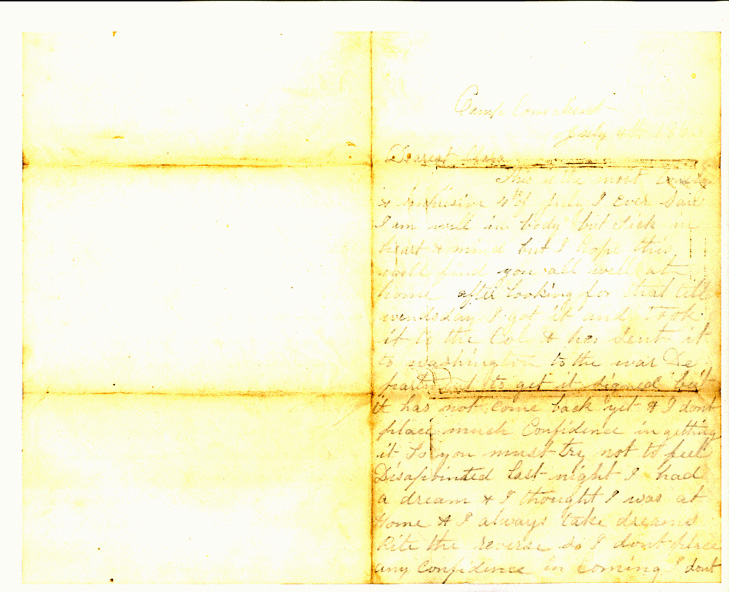 Camp
July 4th 186
Dearest
This is the most
& 4th July I Ever Saw
I am well in body but sick in
heart & mind but I hope this
will find you all well at
home after looking for that till
wendsday I got it and took
it to the Col & he has sent it
to washington to the war De
part to get it signed but
it has not come back yet & I dont
place much Confidence in getting
it So you must try not to feel
Disapointed last night I had
a dream & I thought I was at
Home & I always take dreams
Rite the reverse so I dont place
any Confidence in coming I dont